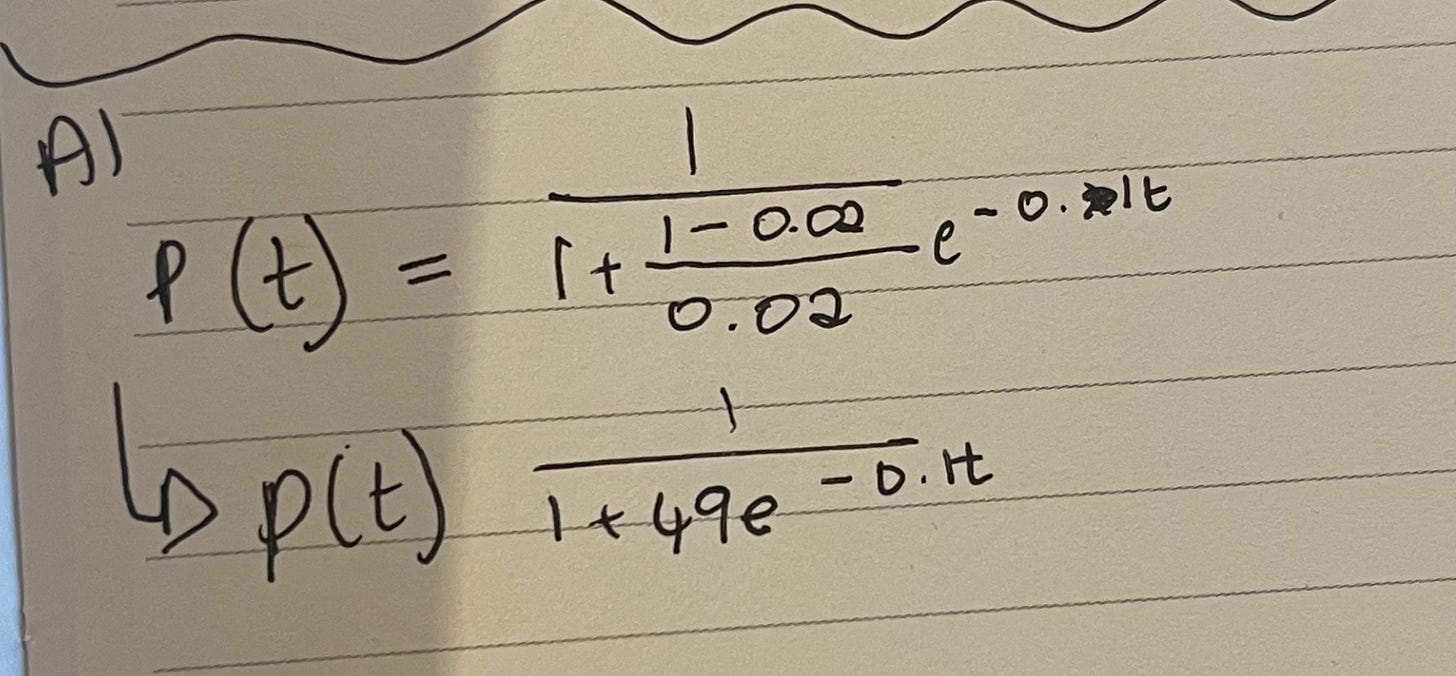 A)
P(t) = 1 / (1 + (1 - 0.02)/0.02 e^(-0.1t))
↳ p(t) 1 / (1 + 49e^(-0.1t))